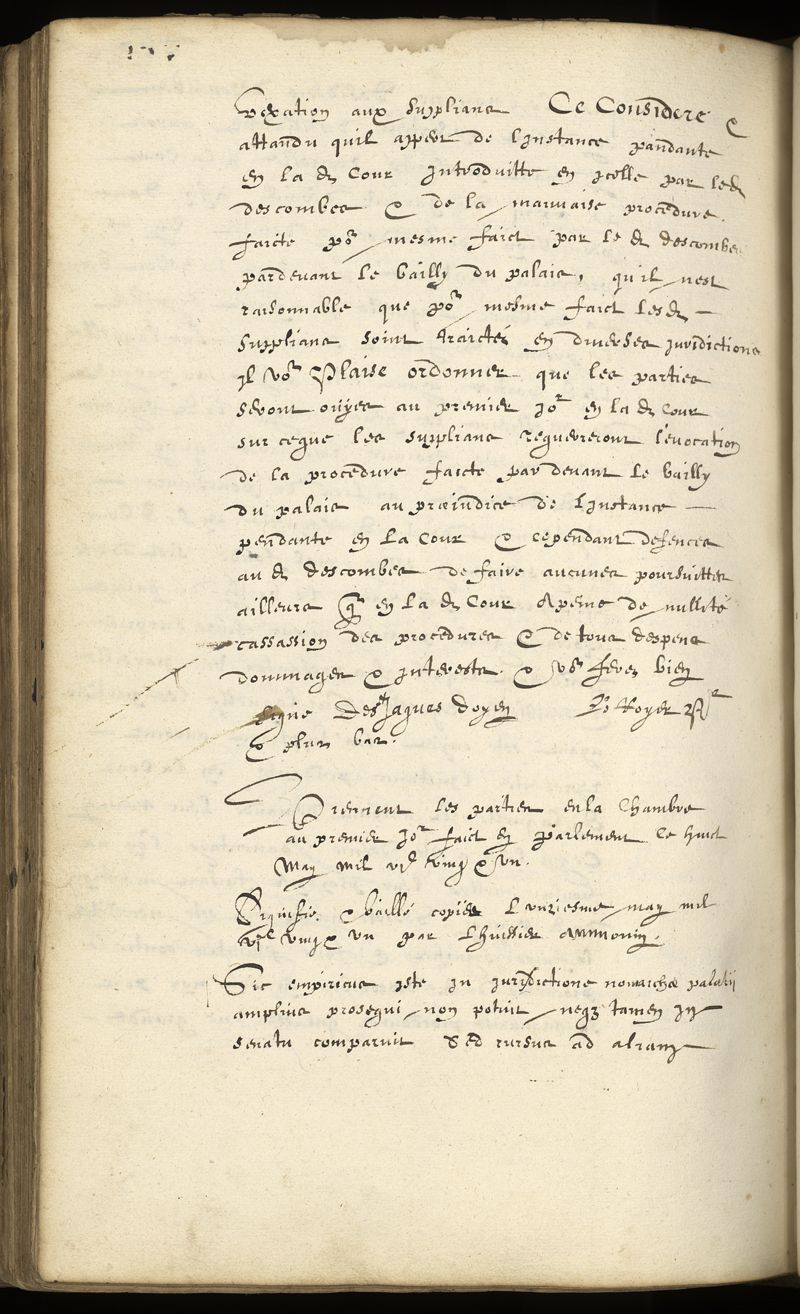 vexation aux supplians Ce Considere &
attandu quil appert de linstance pandante
en la d Cour introduitte en icelle par led
descombes & de la mauvaise procedure
faicte por mesme faict par le d descombes
pardevant le bailly du palais, quil nest
raisonnable que por mesme faict lesd —
supplians soint traictés en diverses juridictions
il vos Plaise ordonner que les parties
seront ouyes au premier jor en la d Cour
sur ceque les supplians requerreront levocation
de la procedure faicte par devant le bailly
du palais au præiudice de linstance —
pendante en La Cour & cependant defences
au d descombes de faire aucunes poursuittes
ailleurs q en la d Cour Apeine de nullité
cassassion des procedures & de tous despens
dommages & interests & vos feres bien
signé Des Jaques doyen Royer
& plus bas.
Viennent les parties en la Chambre
au premier jor faict en Parlement ce huict
May mil vjc vingt & un.
Signifié & baillé copie Lunziesme may mil
vjc vingt & un par Lhuissier Annonin.
Sic empiricus iste in jurisdictione nomarchæ palatij
amplius prosequi non potuit neqz tamen in
senatu comparuit sed rursus ad aliam